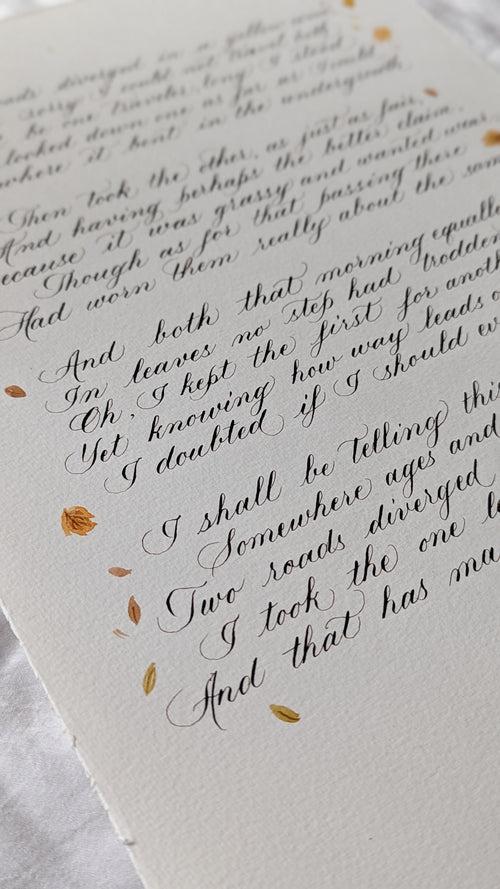 oads diverged in a yellow wood,
sorry I could not travel both
be one traveler, long I stood
looked down one as far as I could
where it bent in the undergrowth,
Then took the other, as just as fair,
And having perhaps the better claim,
ecause it was grassy and wanted wear
Though as for that passing there
Had worn them really about the sam
And both that morning equally
In leaves no step had trodden
Oh, I kept the first for anoth
Yet knowing how way leads o
I doubted if I should ev
I shall be telling this
Somewhere ages and
Two roads diverged
I took the one le
And that has ma